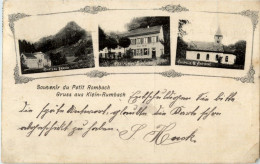 Souvenir du Petit Rombach
Gruss aus Klein-Rumbach
Entschuldigen Sie bitte
die späte Antwort, glaubte die Karte schon
fortgeschickt zu haben. S. Huck